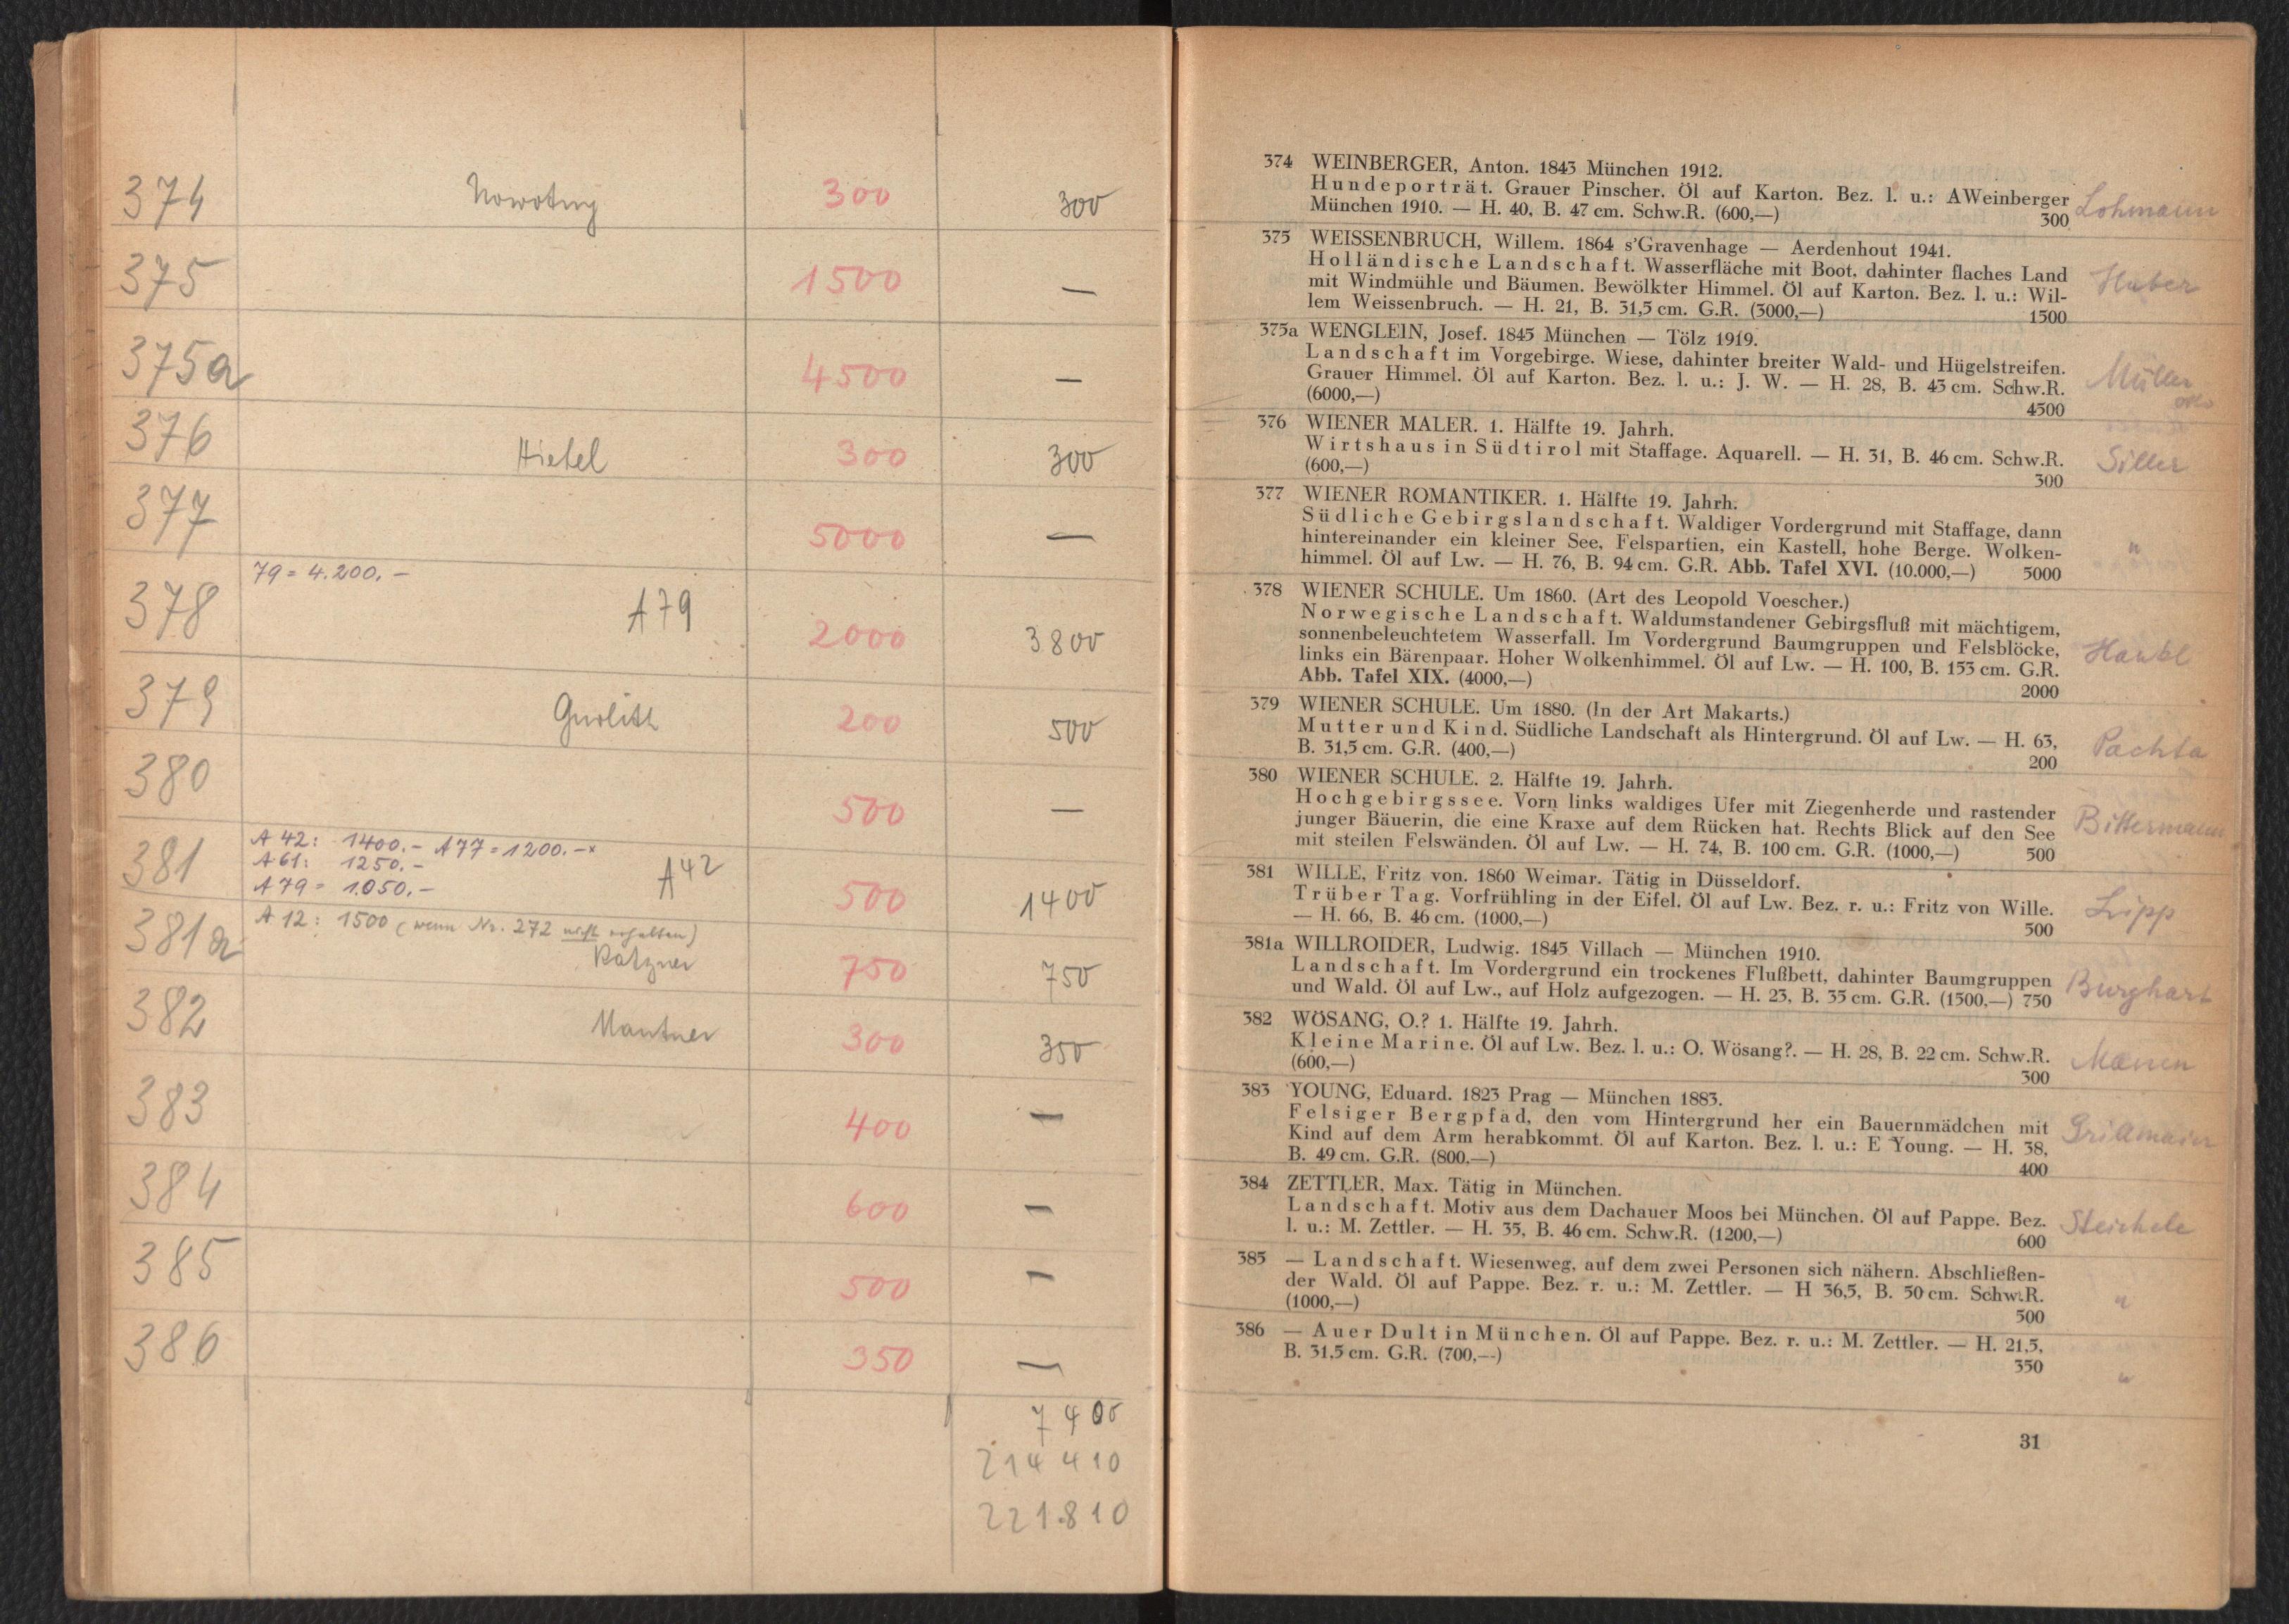 374 Nowotny 300 300
375 1500 —
375a 4500 —
376 Hiebel 300 300
377 5000 —
79 = 4.200.–
378 A 79 2000 3.800
379 Gurlitt 200 500
380 500 —
A 42: 1400.– A 77 = 1200.–x
381 A 61: 1250.– A 42 500 1400
A 79 = 1.050.–
A 12: 1500 (wenn Nr. 272 nicht erhalten)
381a Ratzner 750 750
382 Mautner 300 350
383 400 —
384 600 —
385 500 —
386 350 —
7400
214 410
221.810
374 WEINBERGER, Anton. 1843 München 1912.
Hundeporträt. Grauer Pinscher. Öl auf Karton. Bez. l. u.: AWeinberger
München 1910. — H. 40, B. 47 cm. Schw.R. (600,—) 300
Lohmann
375 WEISSENBRUCH, Willem. 1864 s'Gravenhage — Aerdenhout 1941.
Holländische Landschaft. Wasserfläche mit Boot, dahinter flaches Land
mit Windmühle und Bäumen. Bewölkter Himmel. Öl auf Karton. Bez. l. u.: Wil-
lem Weissenbruch. — H. 21, B. 31,5 cm. G.R. (3000,—) 1500
Huber
375a WENGLEIN, Josef. 1845 München — Tölz 1919.
Landschaft im Vorgebirge. Wiese, dahinter breiter Wald- und Hügelstreifen.
Grauer Himmel. Öl auf Karton. Bez. l. u.: J. W. — H. 28, B. 43 cm. Schw.R.
(6000,—) 4500
Müller
376 WIENER MALER. 1. Hälfte 19. Jahrh.
Wirtshaus in Südtirol mit Staffage. Aquarell. — H. 31, B. 46 cm. Schw.R.
(600,—) 300
Siller
377 WIENER ROMANTIKER. 1. Hälfte 19. Jahrh.
Südliche Gebirgslandschaft. Waldiger Vordergrund mit Staffage, dann
hintereinander ein kleiner See, Felspartien, ein Kastell, hohe Berge. Wolken-
himmel. Öl auf Lw. — H. 76, B. 94 cm. G.R. Abb. Tafel XVI. (10.000,—) 5000
"
378 WIENER SCHULE. Um 1860. (Art des Leopold Voescher.)
Norwegische Landschaft. Waldumstandener Gebirgsfluß mit mächtigem,
sonnenbeleuchtetem Wasserfall. Im Vordergrund Baumgruppen und Felsblöcke,
links ein Bärenpaar. Hoher Wolkenhimmel. Öl auf Lw. — H. 100, B. 153 cm. G.R.
Abb. Tafel XIX. (4000,—) 2000
379 WIENER SCHULE. Um 1880. (In der Art Makarts.)
Mutter und Kind. Südliche Landschaft als Hintergrund. Öl auf Lw. — H. 63,
B. 31,5 cm. G.R. (400,—) 200
Pachta
380 WIENER SCHULE. 2. Hälfte 19. Jahrh.
Hochgebirgssee. Vorn links waldiges Ufer mit Ziegenherde und rastender
junger Bäuerin, die eine Kraxe auf dem Rücken hat. Rechts Blick auf den See
mit steilen Felswänden. Öl auf Lw. — H. 74, B. 100 cm. G.R. (1000,—) 500
Bittermann
381 WILLE, Fritz von. 1860 Weimar. Tätig in Düsseldorf.
Trüber Tag. Vorfrühling in der Eifel. Öl auf Lw. Bez. r. u.: Fritz von Wille.
— H. 66, B. 46 cm. (1000,—) 500
Lipp
381a WILLROIDER, Ludwig. 1845 Villach — München 1910.
Landschaft. Im Vordergrund ein trockenes Flußbett, dahinter Baumgruppen
und Wald. Öl auf Lw., auf Holz aufgezogen. — H. 23, B. 33 cm. G.R. (1500,—) 750
Burghart
382 WÖSANG, O.? 1. Hälfte 19. Jahrh.
Kleine Marine. Öl auf Lw. Bez. l. u.: O. Wösang?. — H. 28, B. 22 cm. Schw.R.
(600,—) 300
383 YOUNG, Eduard. 1823 Prag — München 1883.
Felsiger Bergpfad, den vom Hintergrund her ein Bauernmädchen mit
Kind auf dem Arm herabkommt. Öl auf Karton. Bez. l. u.: E Young. — H. 38,
B. 49 cm. G.R. (800,—) 400
Grillmaier
384 ZETTLER, Max. Tätig in München.
Landschaft. Motiv aus dem Dachauer Moos bei München. Öl auf Pappe. Bez.
l. u.: M. Zettler. — H. 35, B. 46 cm. Schw.R. (1200,—) 600
Steichele
385 — Landschaft. Wiesenweg, auf dem zwei Personen sich nähern. Abschließen-
der Wald. Öl auf Pappe. Bez. r. u.: M. Zettler. — H 36,5, B. 50 cm. Schw.R.
(1000,—) 500
"
386 — Auer Dult in München. Öl auf Pappe. Bez. r. u.: M. Zettler. — H. 21,5,
B. 31,5 cm. G.R. (700,—) 350
"
31